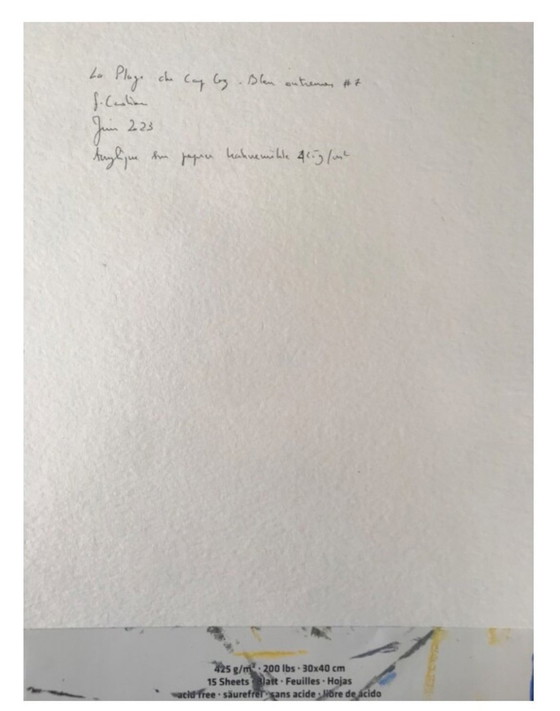 La Plage du Cap Coz - Bleu outremer #7
Juin 2023
Acrylique sur papier Hahnemühle 425g/m²
425 g/m² · 200 lbs · 30x40 cm
15 Sheets · Blatt · Feuilles · Hojas
acid free · säurefrei · sans acide · libre de ácido